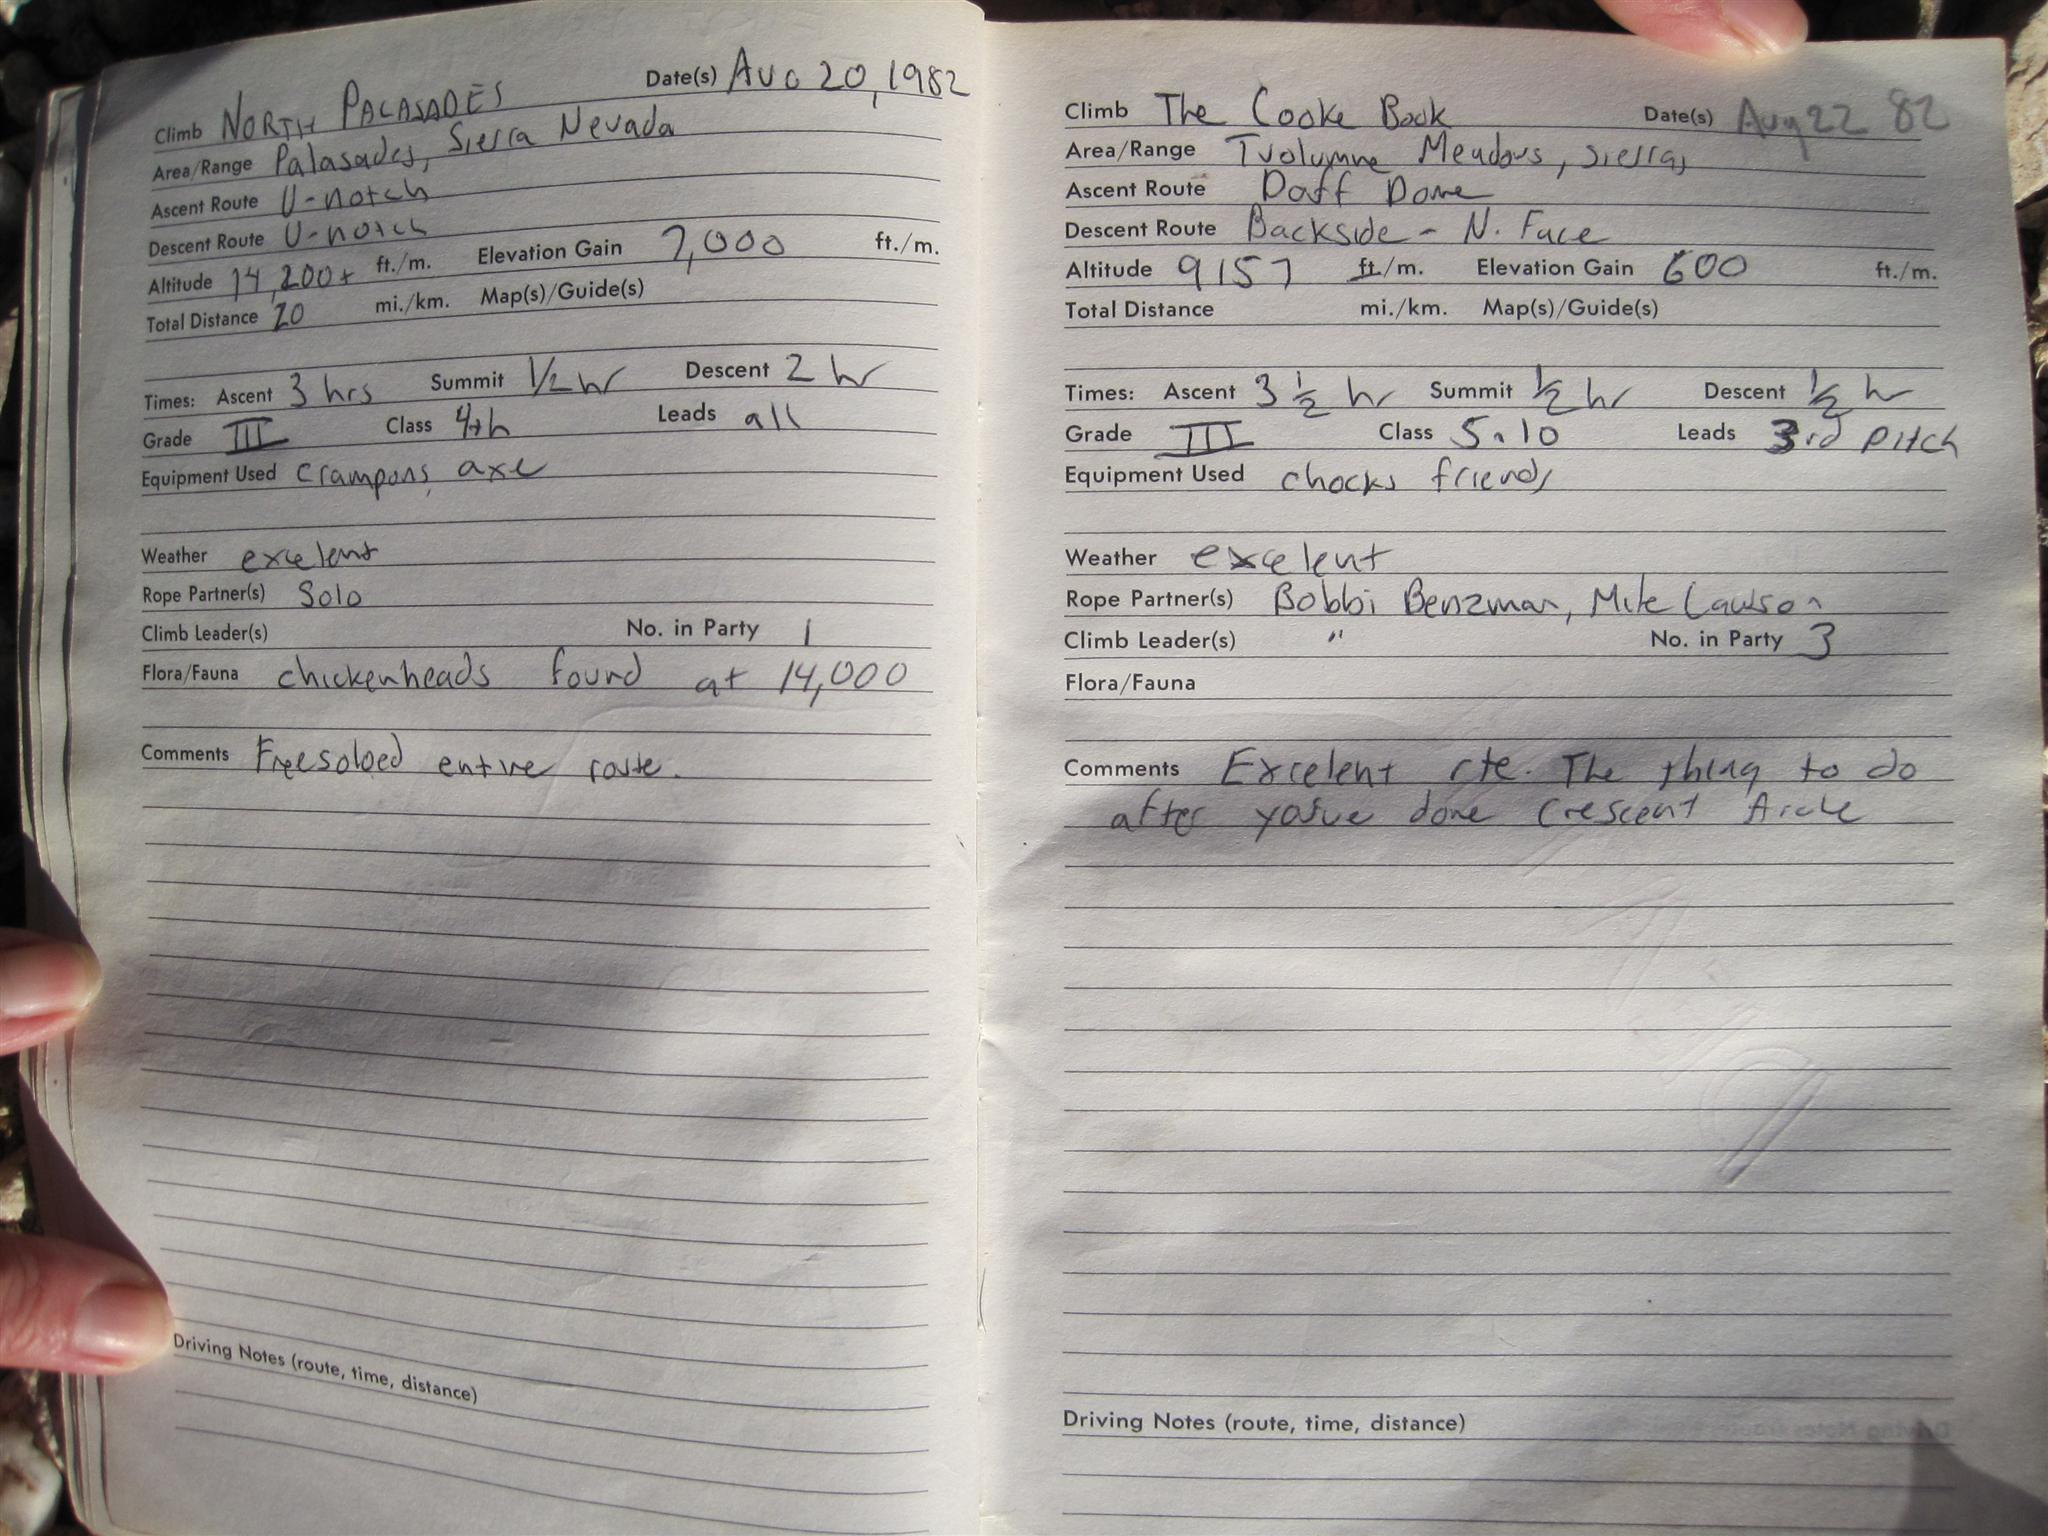 Date(s) AUG 20, 1982
Climb NORTH PALASADES
Area/Range Palasades, Sierra Nevada
Ascent Route U-notch
Descent Route U-notch
Altitude 14,200+ ft./m. Elevation Gain 7,000 ft./m.
Total Distance 20 mi./km. Map(s)/Guide(s)
Times: Ascent 3 hrs Summit 1/2 hr Descent 2 hr
Grade III Class 4th Leads all
Equipment Used crampons, axe
Weather excelent
Rope Partner(s) Solo
Climb Leader(s) No. in Party 1
Flora/Fauna chickenheads found at 14,000
Comments Freesoloed entire route.
Driving Notes (route, time, distance)
Climb The Cooke Book Date(s) Aug 22 82
Area/Range Tuolumne Meadows, Sierras
Ascent Route Daff Dome
Descent Route Backside - N. Face
Altitude 9157 ft./m. Elevation Gain 600 ft./m.
Total Distance mi./km. Map(s)/Guide(s)
Times: Ascent 3 1/2 hr Summit 1/2 hr Descent 1/2 hr
Grade III Class 5.10 Leads 3rd pitch
Equipment Used chocks friends
Weather excelent
Rope Partner(s) Bobbi Benzman, Mike Lawson
Climb Leader(s) " No. in Party 3
Flora/Fauna
Comments Excelent rte. The thing to do
after done Crescent Arch
Driving Notes (route, time, distance)